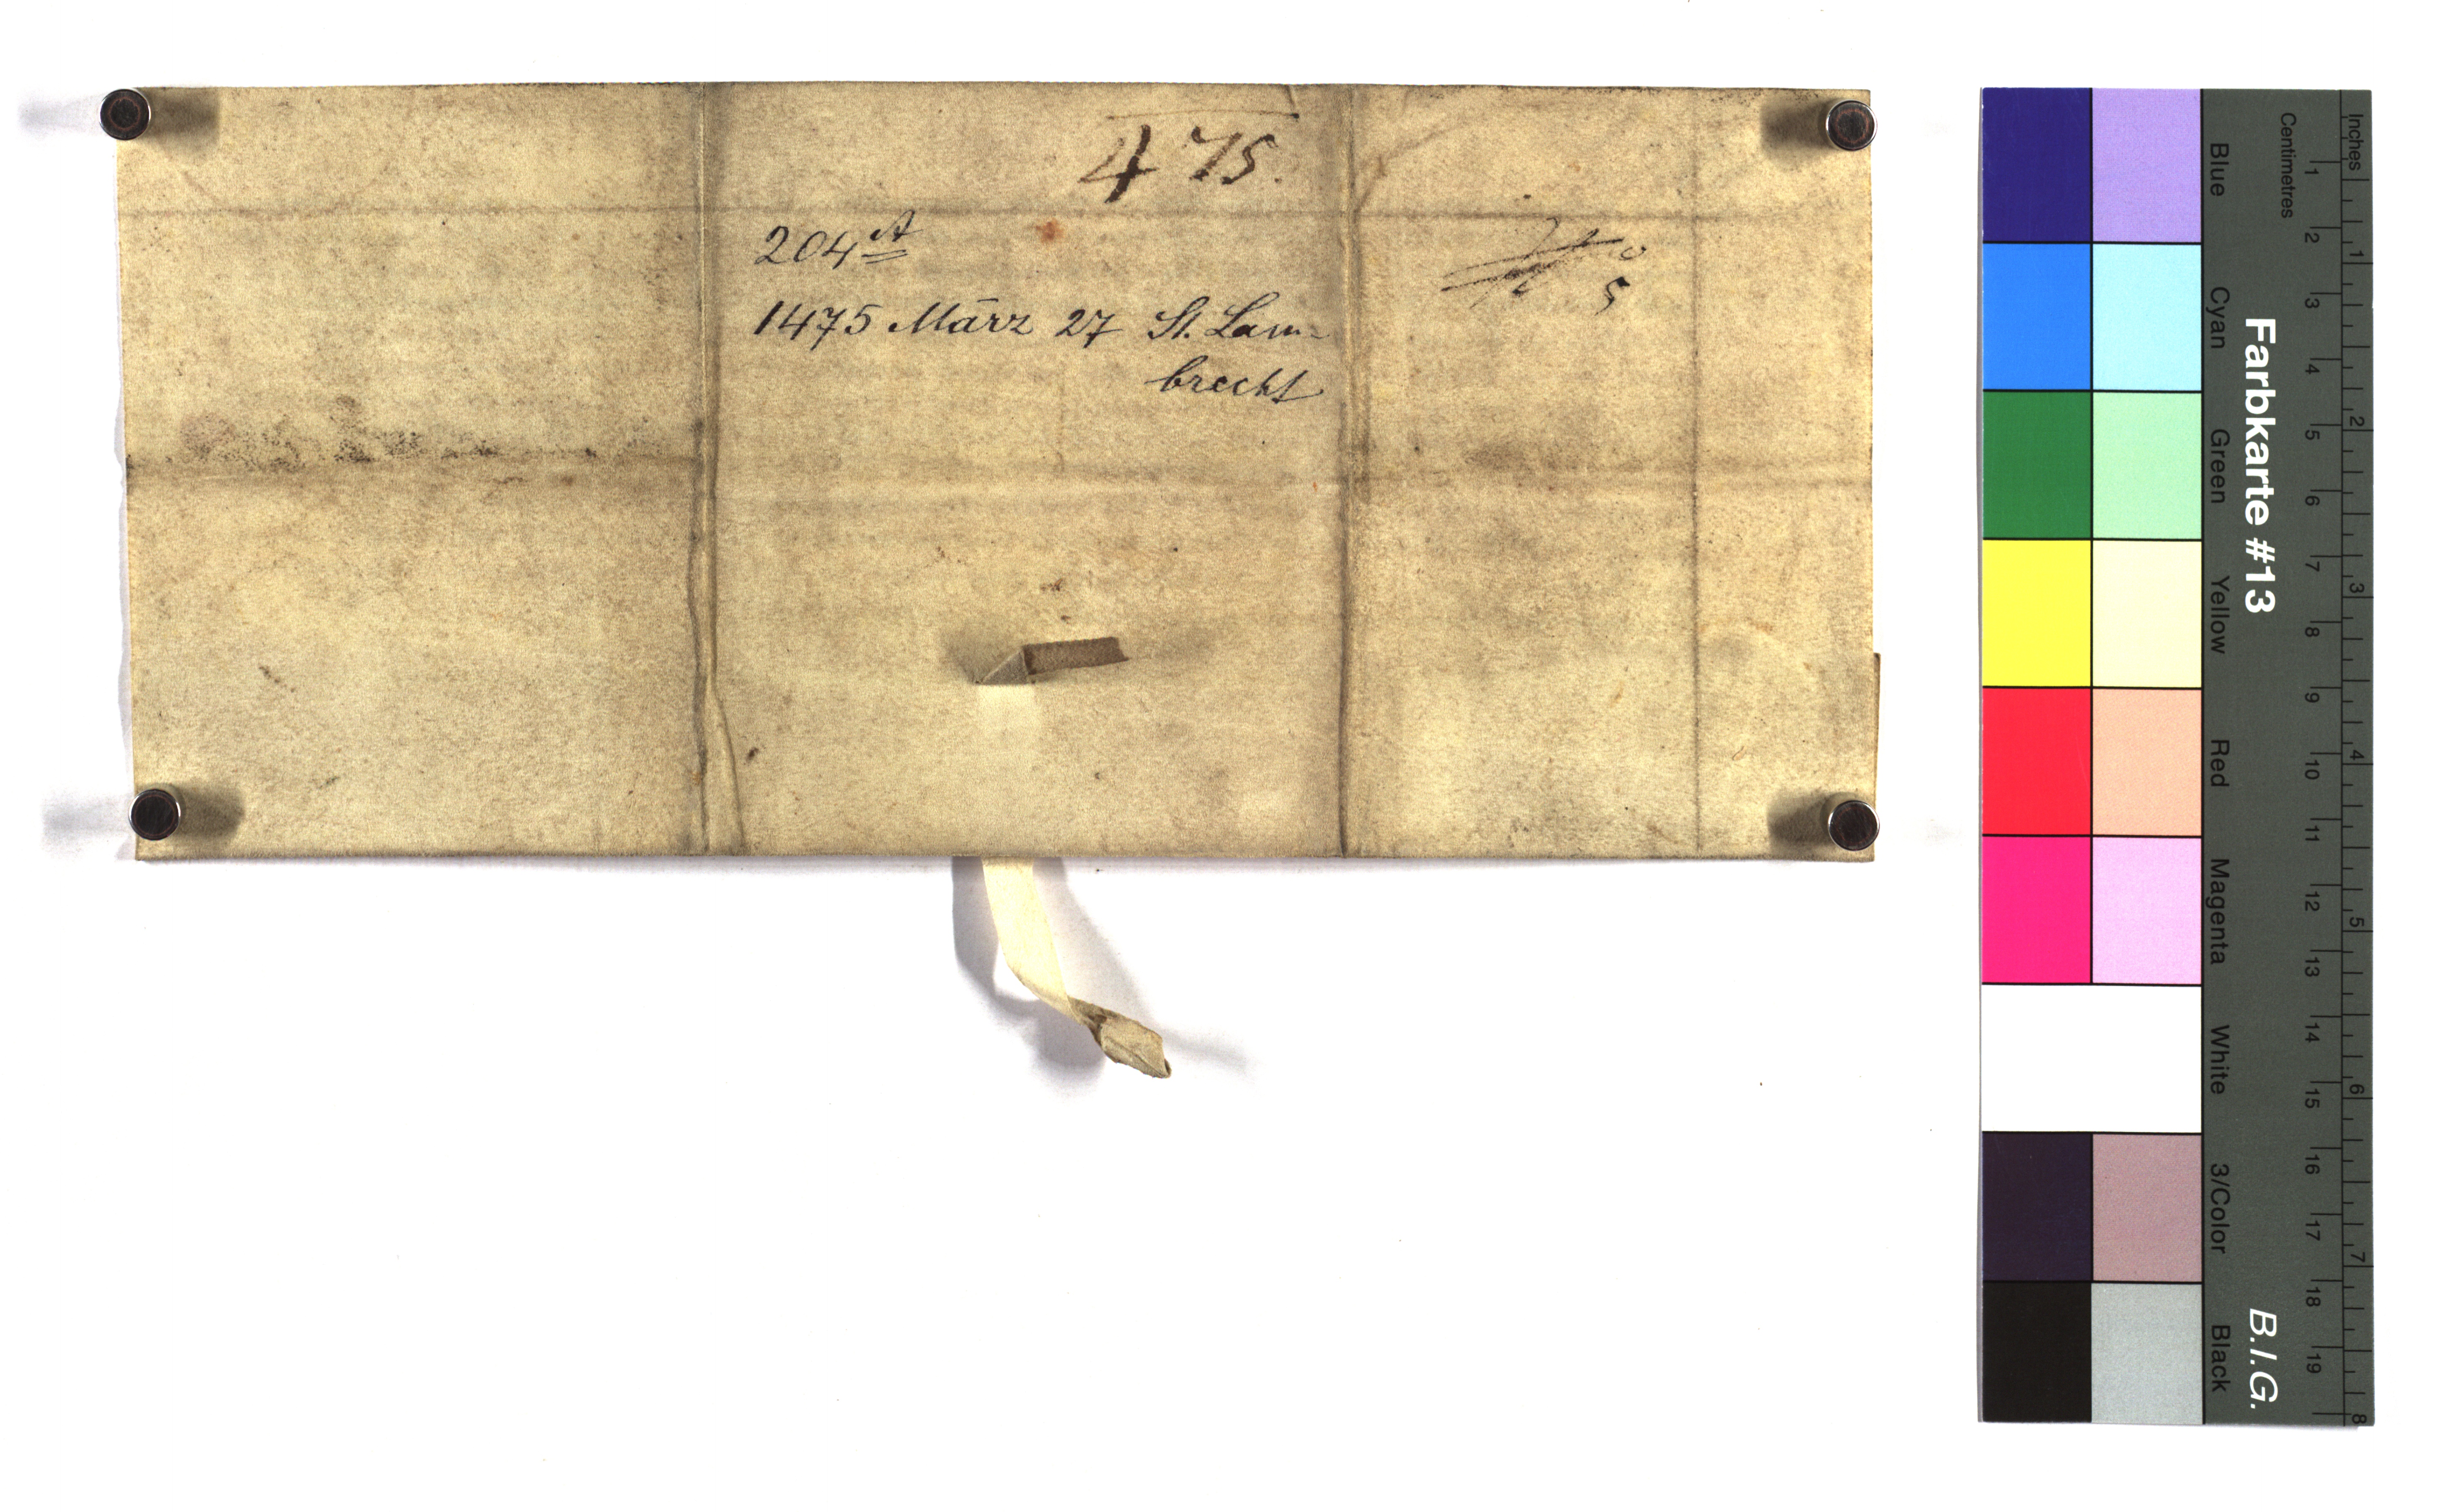 475.
204 A
1475 März 27 St. Lam-
brecht
5
Inches
Centimetres
1 2 3 4 5 6 7 8 9 10 11 12 13 14 15 16 17 18 19
1 2 3 4 5 6 7 8
Farbkarte #13
B.I.G.
Blue
Cyan
Green
Yellow
Red
Magenta
White
3/Color
Black